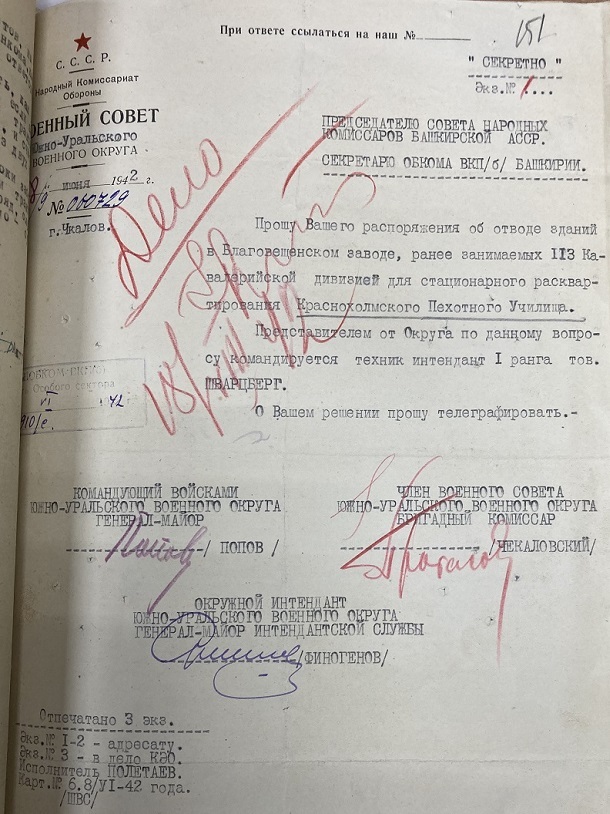 При ответе ссылаться на наш №
151
С. С. С. Р.
Народный Комиссариат
Обороны
ОЕННЫЙ СОВЕТ
Южно-Уральского
ВОЕННОГО ОКРУГА
8/9 июня 1942 г.
№ 000729
г. Чкалов.
" СЕКРЕТНО "
Экз.№ 1....
ПРЕДСЕДАТЕЛЮ СОВЕТА НАРОДНЫХ
КОМИССАРОВ БАШКИРСКОЙ АССР.
СЕКРЕТАРЮ ОБКОМА ВКП/б/ БАШКИРИИ.
Дело
Прошу Вашего распоряжения об отводе зданий
в Благовещенском заводе, ранее занимаемых 113 Ка-
валерийской дивизией для стационарного расквар-
тирования Краснохолмского Пехотного Училища.
Представителем от Округа по данному вопро-
су командируется техник интендант I ранга тов.
ШВАРЦБЕРГ.
О Вашем решении прошу телеграфировать.-
ОБКОМ ВКП/б/
Особого сектора
VI 42
910/с.
КОМАНДУЮЩИЙ ВОЙСКАМИ
ЮЖНО-УРАЛЬСКОГО ВОЕННОГО ОКРУГА
ГЕНЕРАЛ-МАЙОР
/ ПОПОВ /
ЧЛЕН ВОЕННОГО СОВЕТА
ЮЖНО-УРАЛЬСКОГО ВОЕННОГО ОКРУГА
БРИГАДНЫЙ КОМИССАР
/ЧЕКАЛОВСКИЙ/
ОКРУЖНОЙ ИНТЕНДАНТ
ЮЖНО-УРАЛЬСКОГО ВОЕННОГО ОКРУГА
ГЕНЕРАЛ-МАЙОР ИНТЕНДАНТСКОЙ СЛУЖБЫ
/ФИНОГЕНОВ/
Отпечатано 3 экз.
Экз.№ I-2 - адресату.
Экз.№ 3 - в дело КЭО.
Исполнитель ПОЛЕТАЕВ.
Карт.№ 6.8/VI-42 года.
/ШВС/